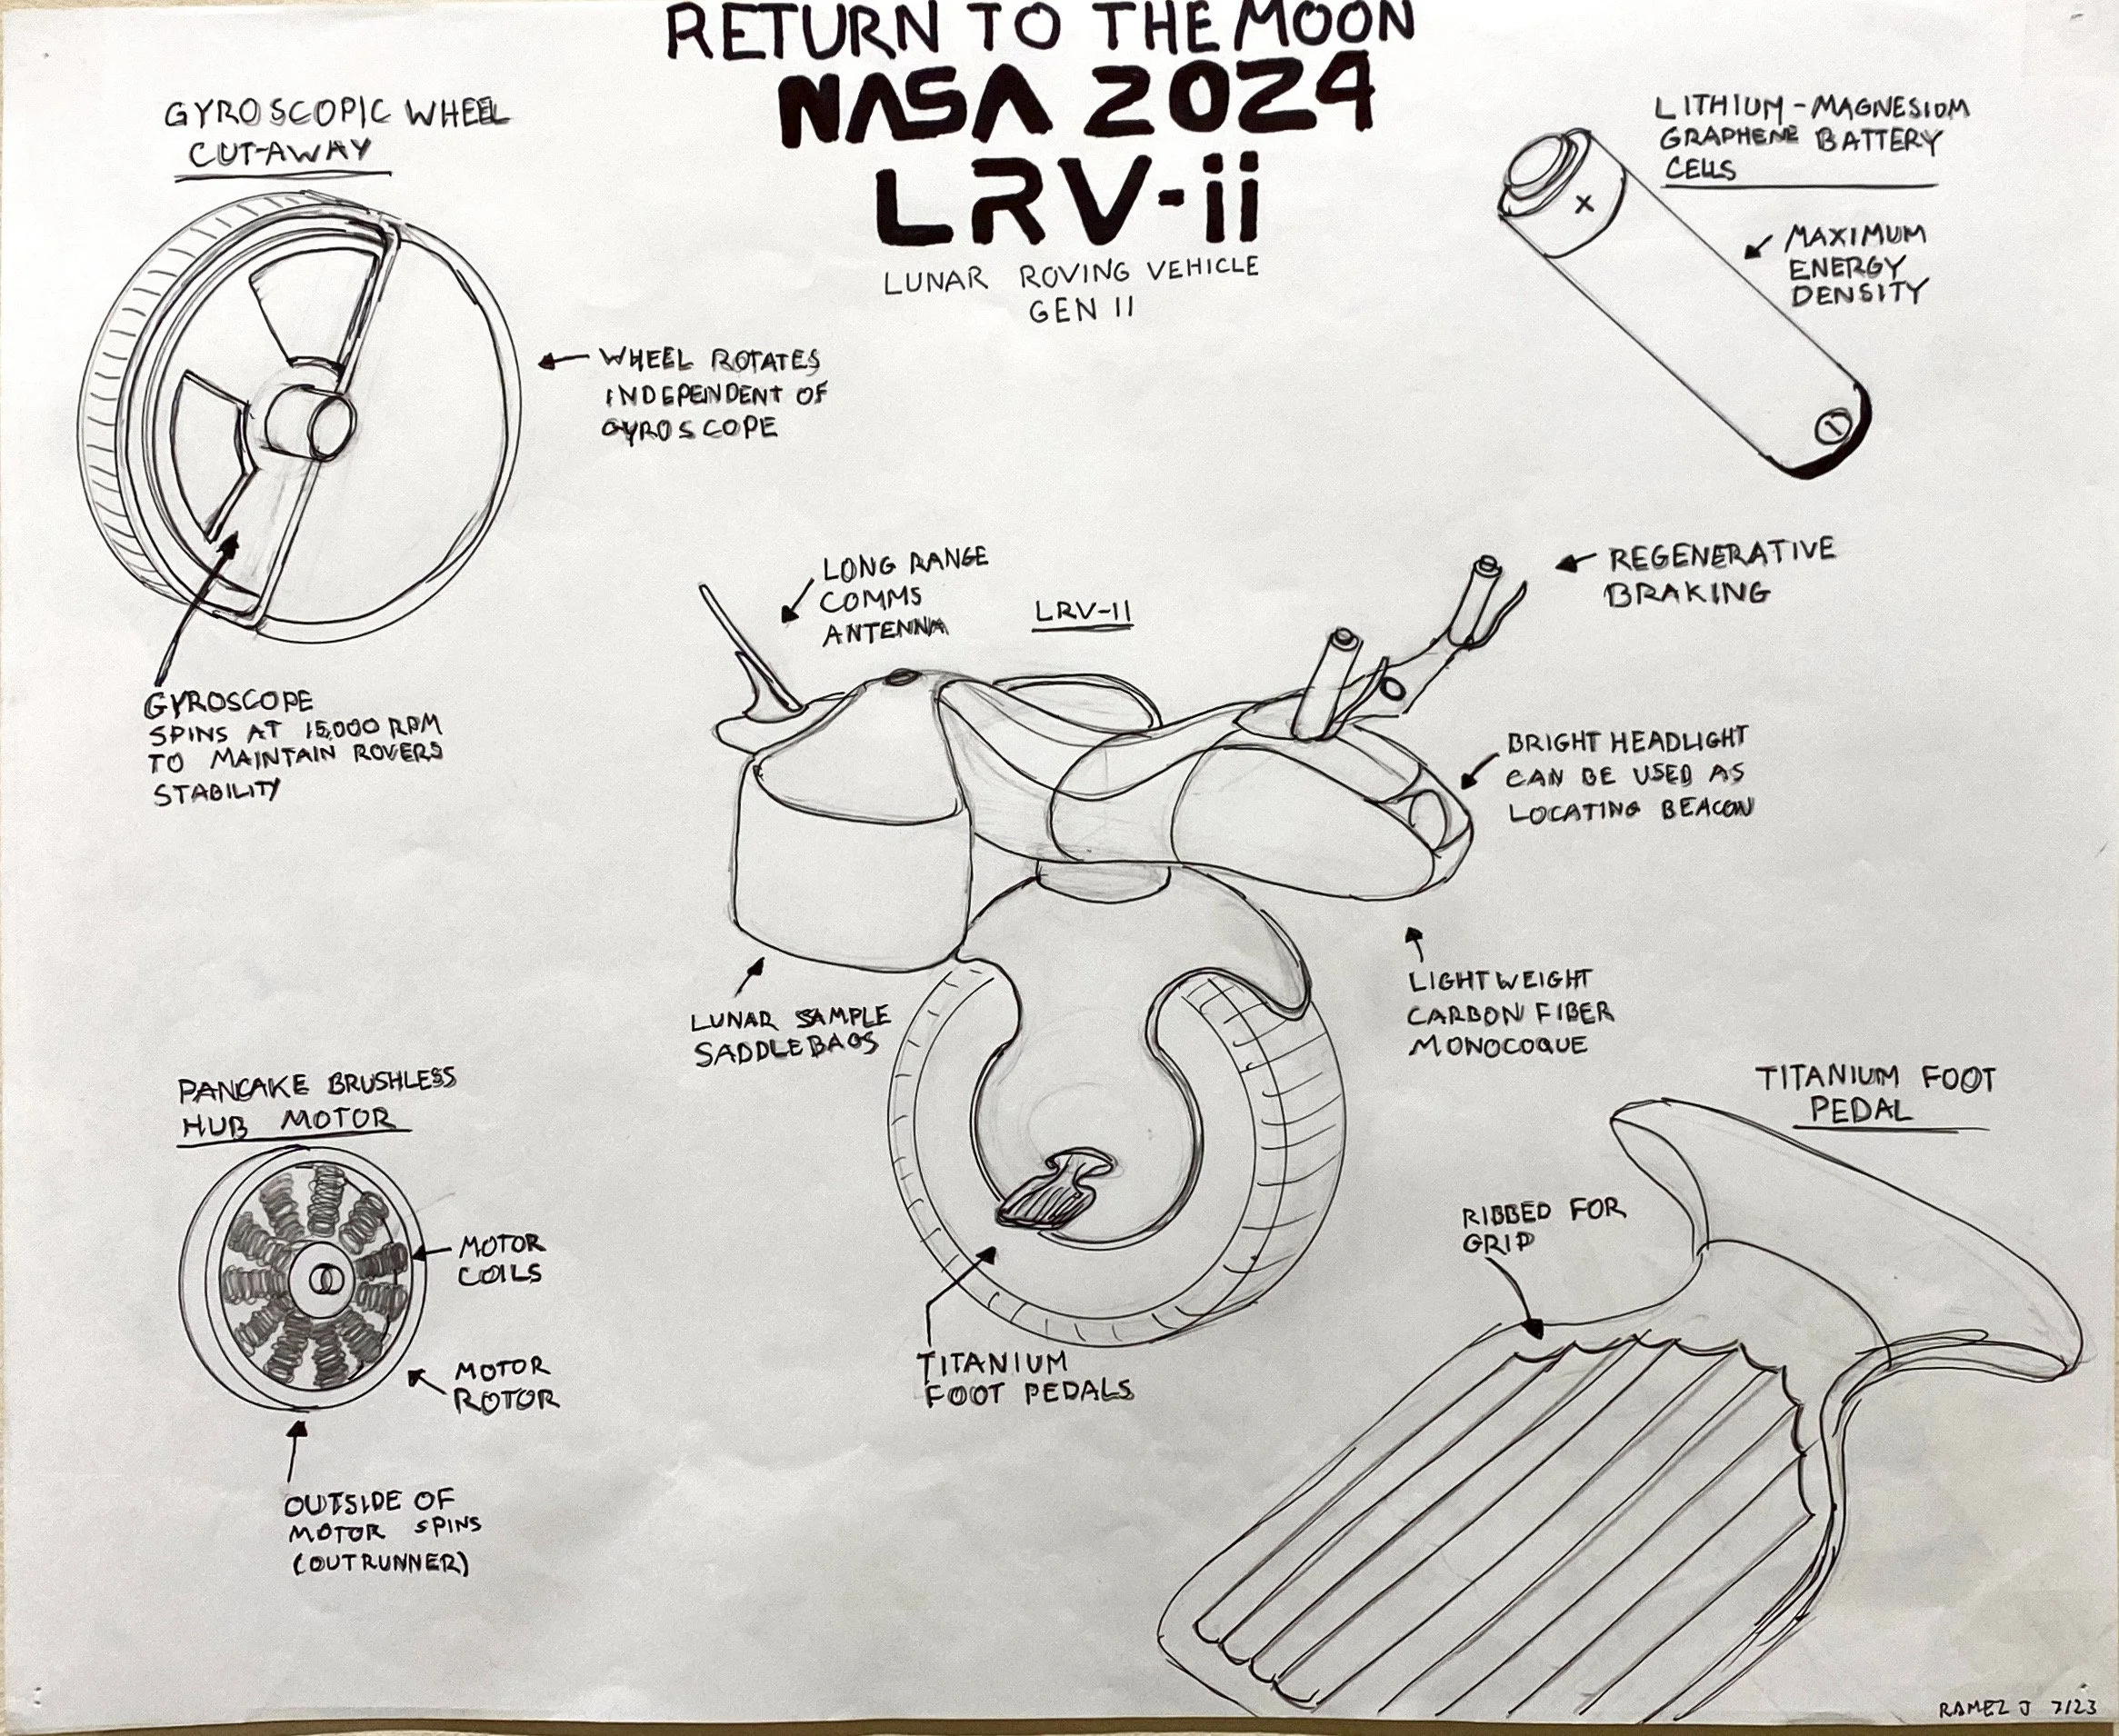 RETURN TO THE MOON
NASA 2024
LRV-ii
LUNAR ROVING VEHICLE
GEN II
GYROSCOPIC WHEEL
CUT-AWAY
WHEEL ROTATES
INDEPENDENT OF
GYROSCOPE
GYROSCOPE
SPINS AT 15,000 RPM
TO MAINTAIN ROVERS
STABILITY
LITHIUM-MAGNESIUM
GRAPHENE BATTERY
CELLS
MAXIMUM
ENERGY
DENSITY
LONG RANGE
COMMS
ANTENNA
LRV-II
REGENERATIVE
BRAKING
BRIGHT HEADLIGHT
CAN BE USED AS
LOCATING BEACON
LIGHTWEIGHT
CARBON FIBER
MONOCOQUE
LUNAR SAMPLE
SADDLEBAGS
TITANIUM
FOOT PEDALS
PANCAKE BRUSHLESS
HUB MOTOR
MOTOR
COILS
MOTOR
ROTOR
OUTSIDE OF
MOTOR SPINS
(OUTRUNNER)
TITANIUM FOOT
PEDAL
RIBBED FOR
GRIP
RAMEZ J 7/23